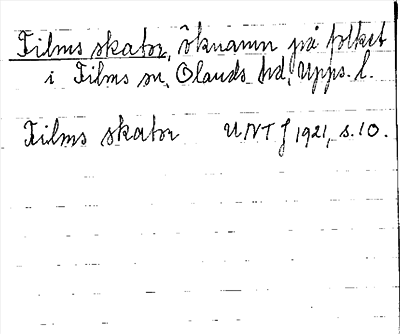 Films skator, öknamn på folket
i Films sn, Olands hd, Upps. l.
Films skator UNT J 1921, s. 10.